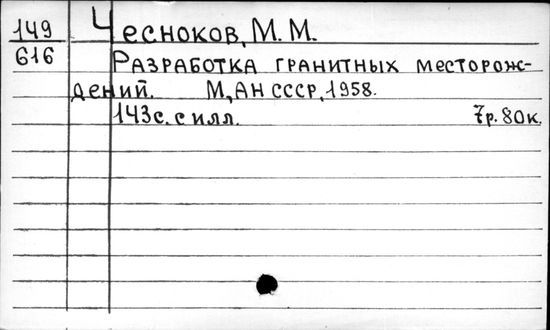 149 Чесноков, М. М.
616 Разработка гранитных месторож-
дений. М, АН СССР, 1958.
143с. с илл. 7р. 80к.